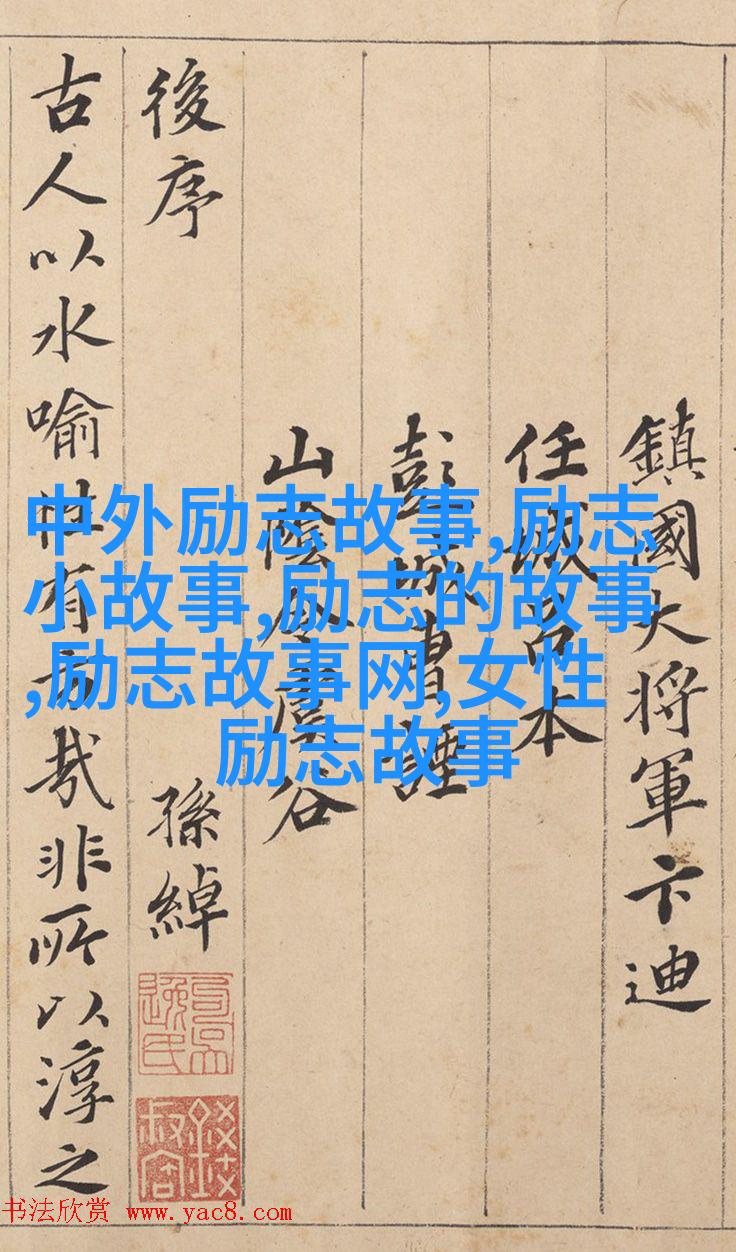 鎮國大将軍卞迪
任城呂本
彭城曹諲
山陰令虞谷
後序
孫綽
古人以水喻性有旨哉非所以淳之
中外励志故事,励志
小故事,励志的故事
,励志故事网,女性
励志故事
书法欣赏 www.yac8.com